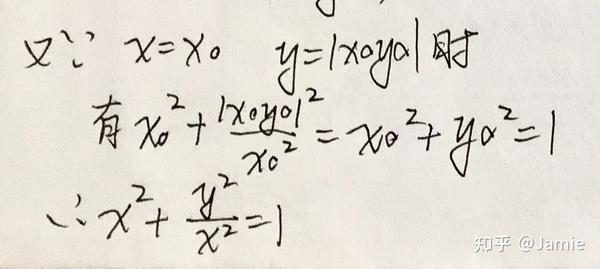 又∵ x=x₀ y=|x₀y₀|时
有 x₀²+|x₀y₀|²/x₀²=x₀²+y₀²=1
∴x²+y²/x²=1
知乎 @Jamie